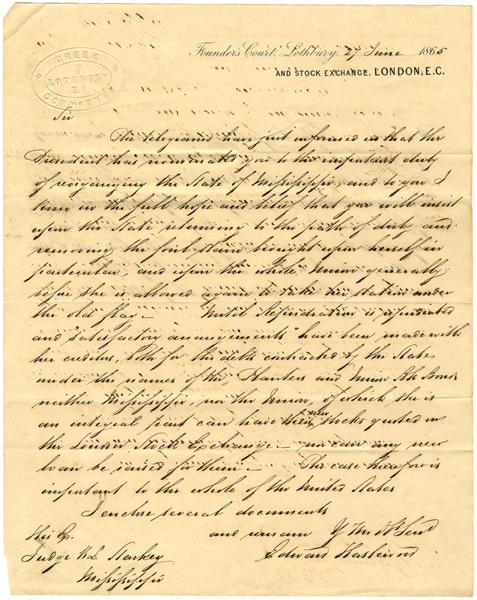 GREEK
LOTHBURY
E.C.
COMMITTEE
Founder's Court, Lothbury, 27 June 1865
AND STOCK EXCHANGE, LONDON, E.C.
Sir
The telegrams have just informed us that the
President has nominated you to the important duty
of reorganizing the State of Mississippi, and to you I
turn in the full hope and belief that you will insist
upon the State returning to the path of duty and
removing the foul stain brought upon herself in
particular, and upon the whole Union generally
before she is allowed again to take her station under
the old flag — Until Repudiation is repudiated
and "satisfactory arrangements" have been made with
her creditors, both for the debts contracted by the State
under the names of the Planters and Union Bk Bonds
neither Mississippi, nor the Union, of which she is
an integral part can have their new Stocks quoted on
the London Stock Exchange — nor can any new
loan be raised for them — The case therefore is
important to the whole of the United States
I enclose several documents
and remain Y Mo Ob Servt
His Ex. Edward Haslewood
Judge W L Sharkey
Mississippi